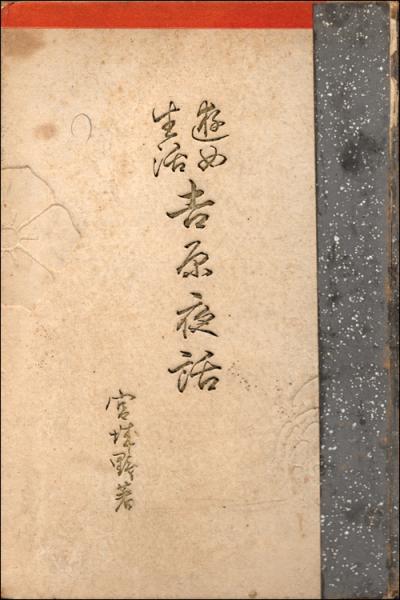 遊女
生活
吉原夜話
宮城野著